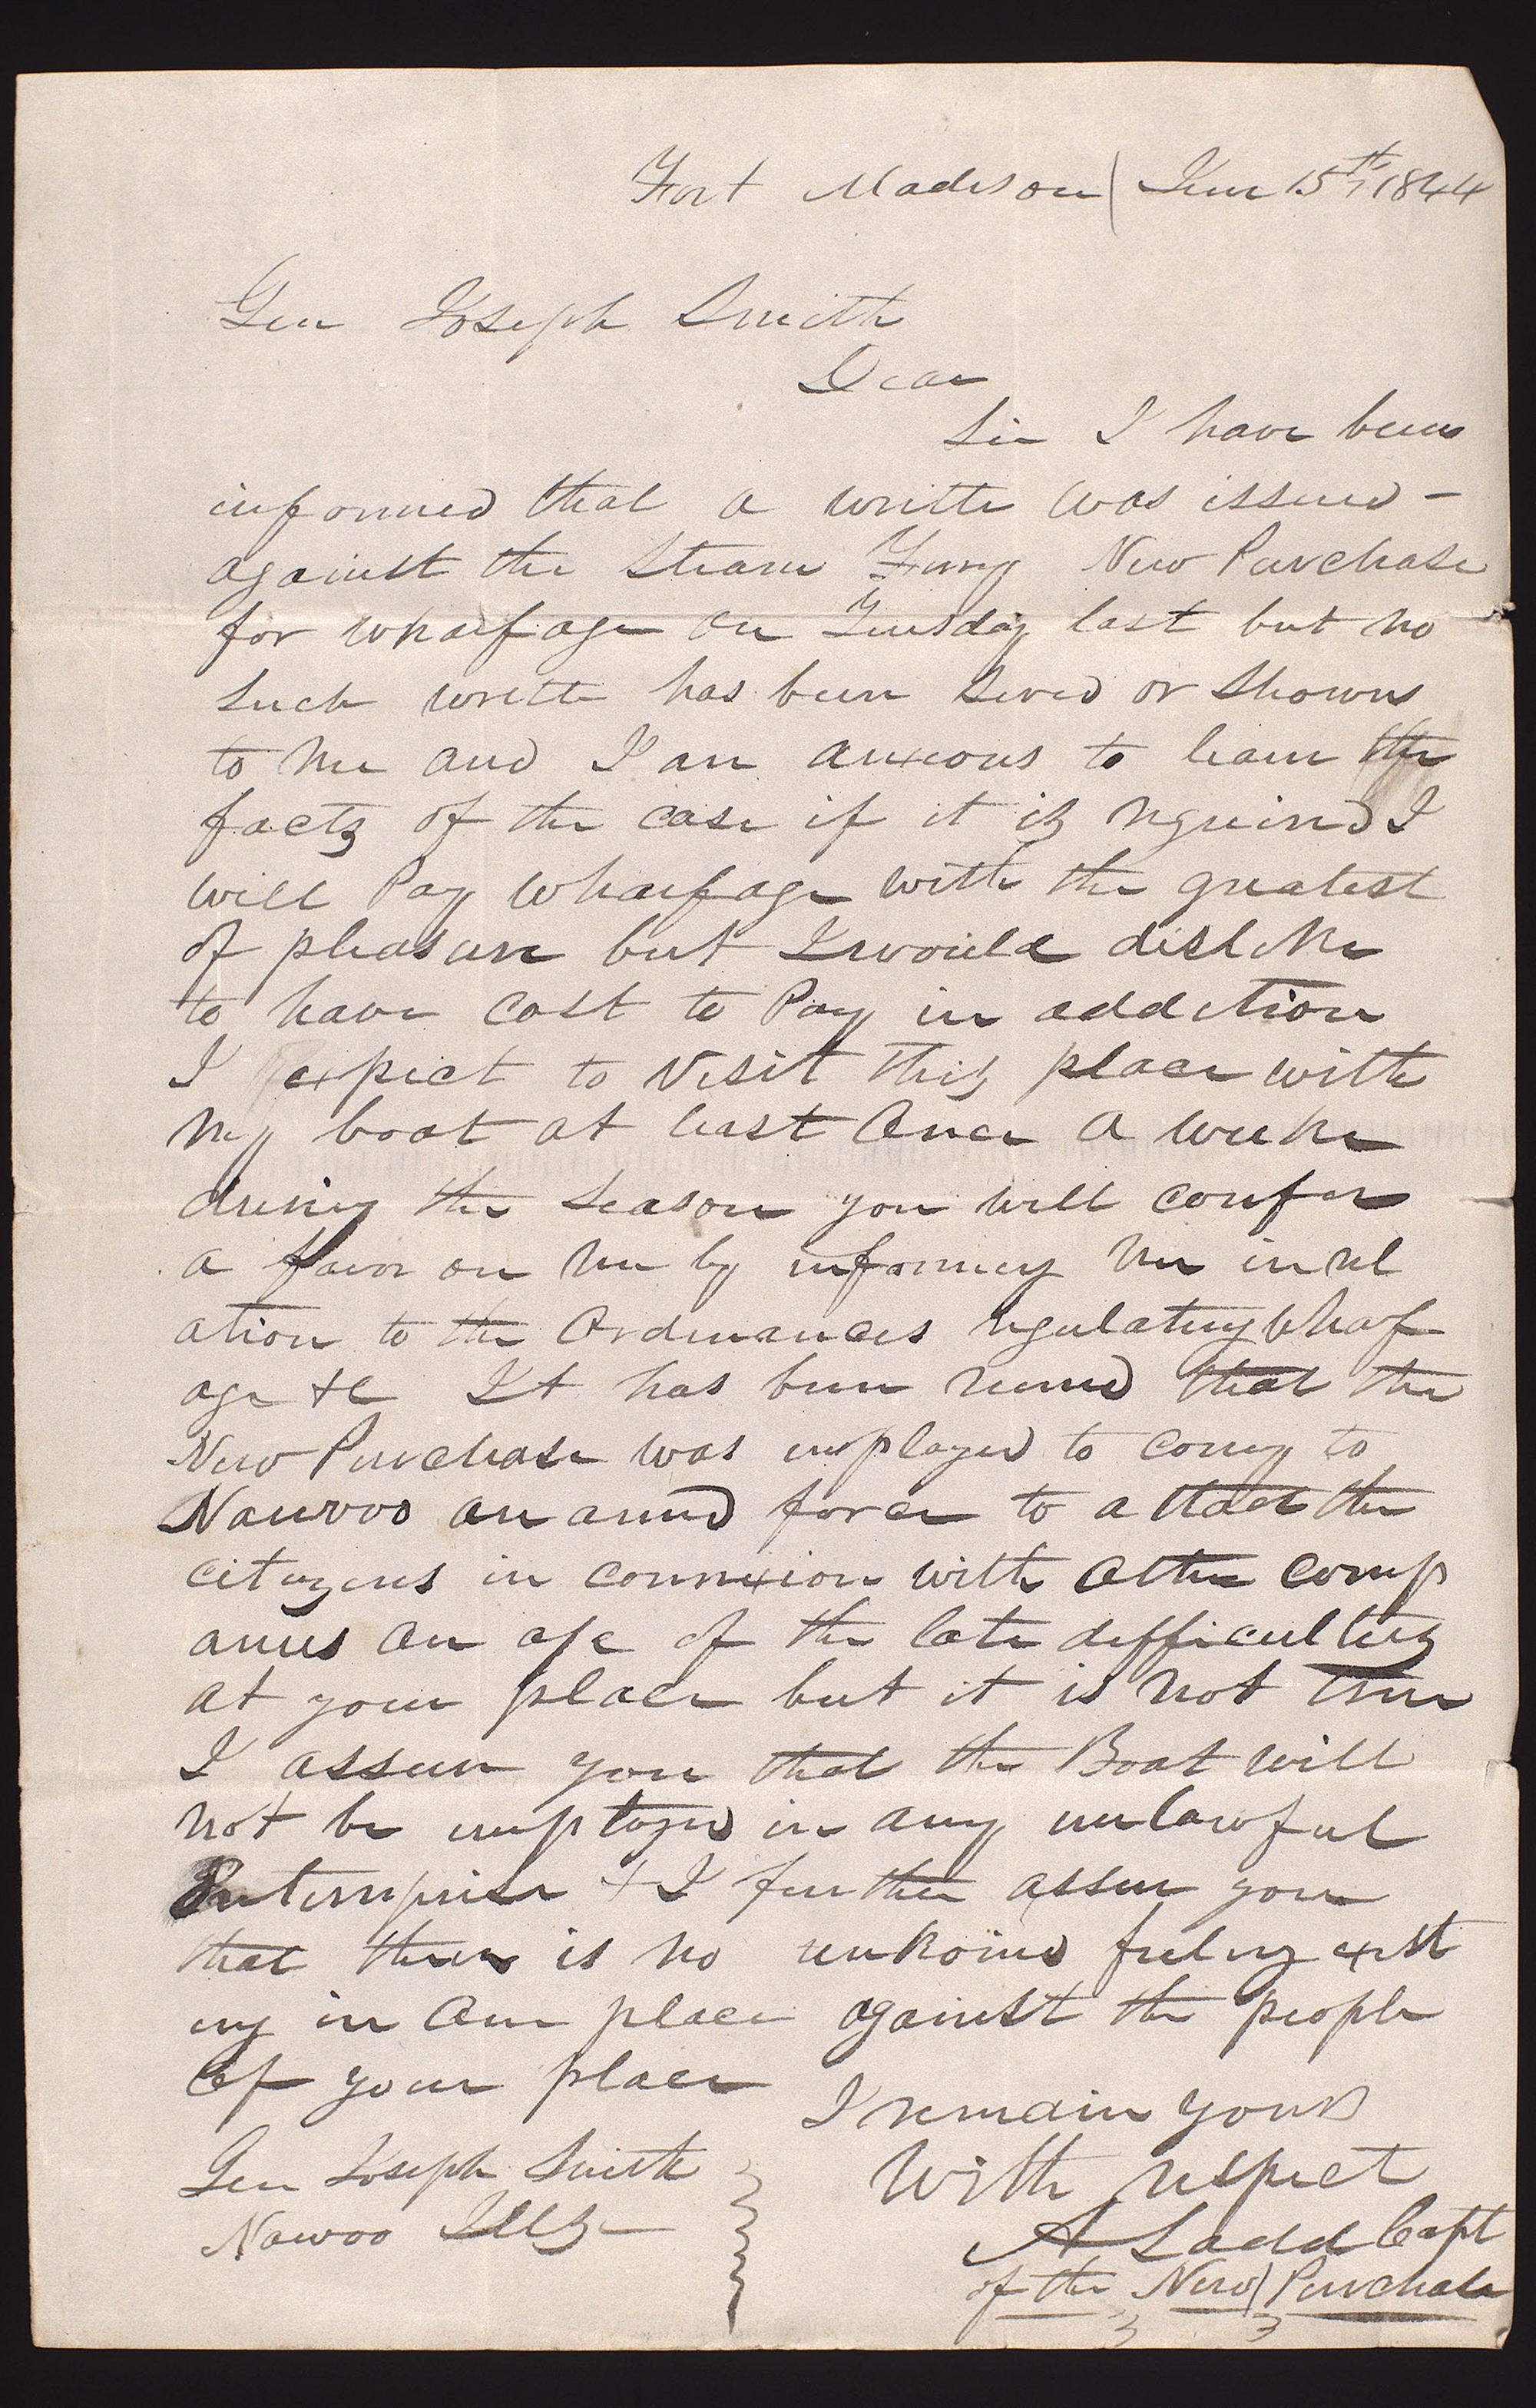 Fort Madison June 15th 1844
Gen Joseph Smith
Dear
Sir I have been
informed that a writte was issued -
against the Steam Ferry New Purchase
for wharfage on Tuesday last but no
such writte has been served or shown
to me and I am anxious to learn the
facts of the case if it is required I
will Pay wharfage with the greatest
of pleasure but I would dislike
to have cost to Pay in addition
I expect to visit this place with
my boat at least once a weeke
during the season you will confer
a favor on me by informing me in rel
ation to the Ordinances regulating whaf
age &c It has been rumed that the
New Purchase was employed to convey to
Nauvoo an armed force to attact the
citizens in connexion with other comp
anies on a/c of the late difficulties
at your place but it is not true
I assure you that the Boat will
not be employed in any unlawful
Enterprise & I further assure you
that there is no unkoind feeling exist
ing in our place against the people
of your place
I remain yours
with respect
A Ladd Capt
of the New Purchase
Gen Joseph Smith
Nawoo Ills